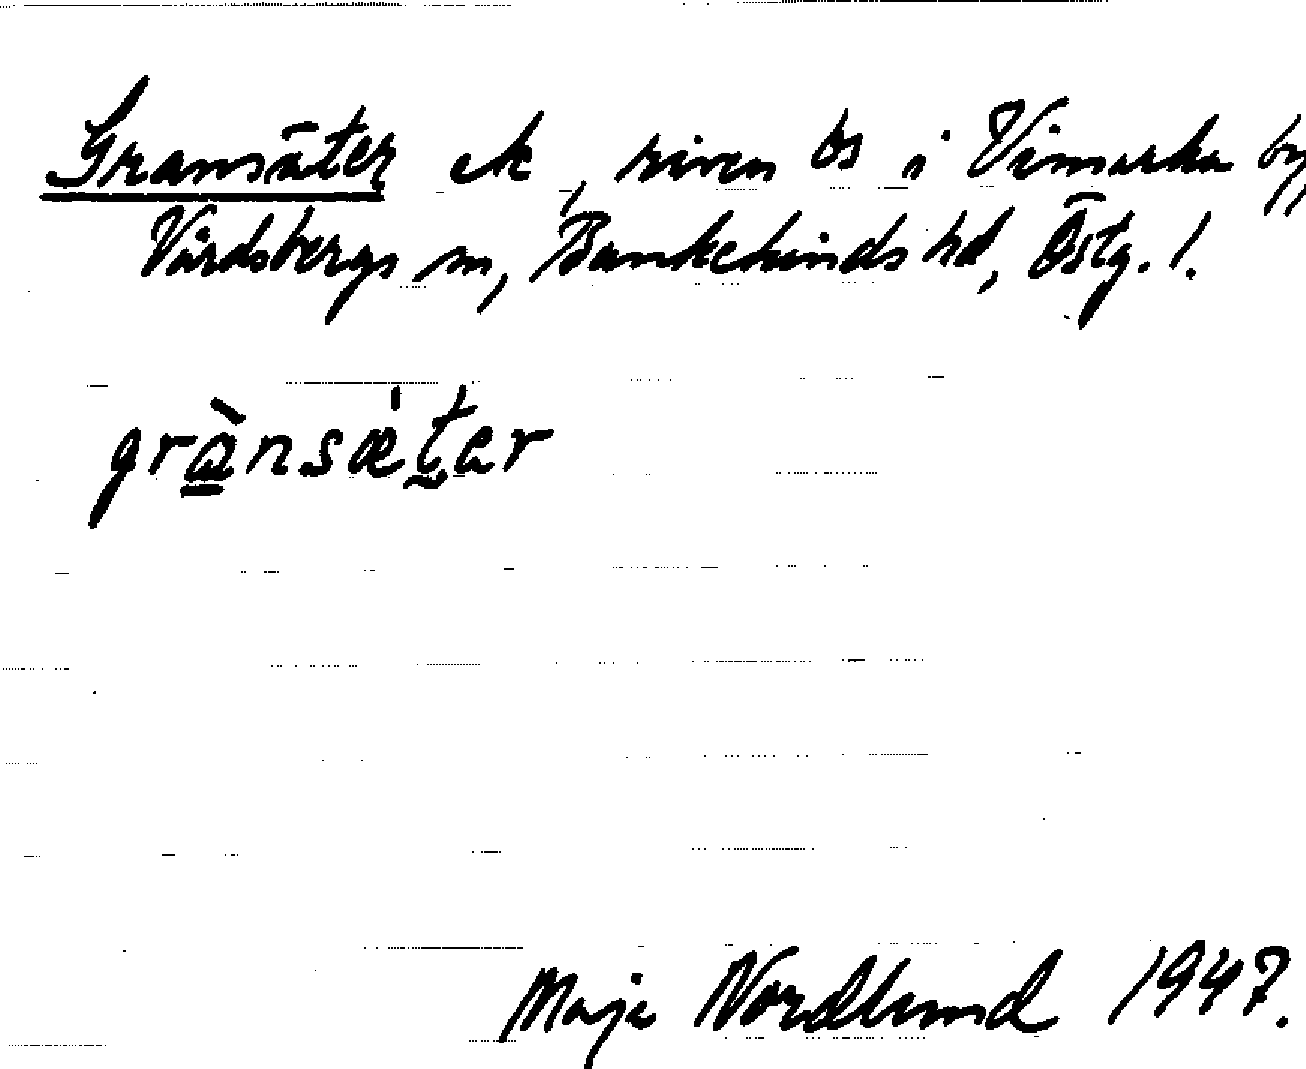 Gransäter ek, riven bs i Vimarka by
Vårdsbergs sn, Bankekinds hd, Östg. l.
grànsæ̍tar
Maja Nordlund 1947.